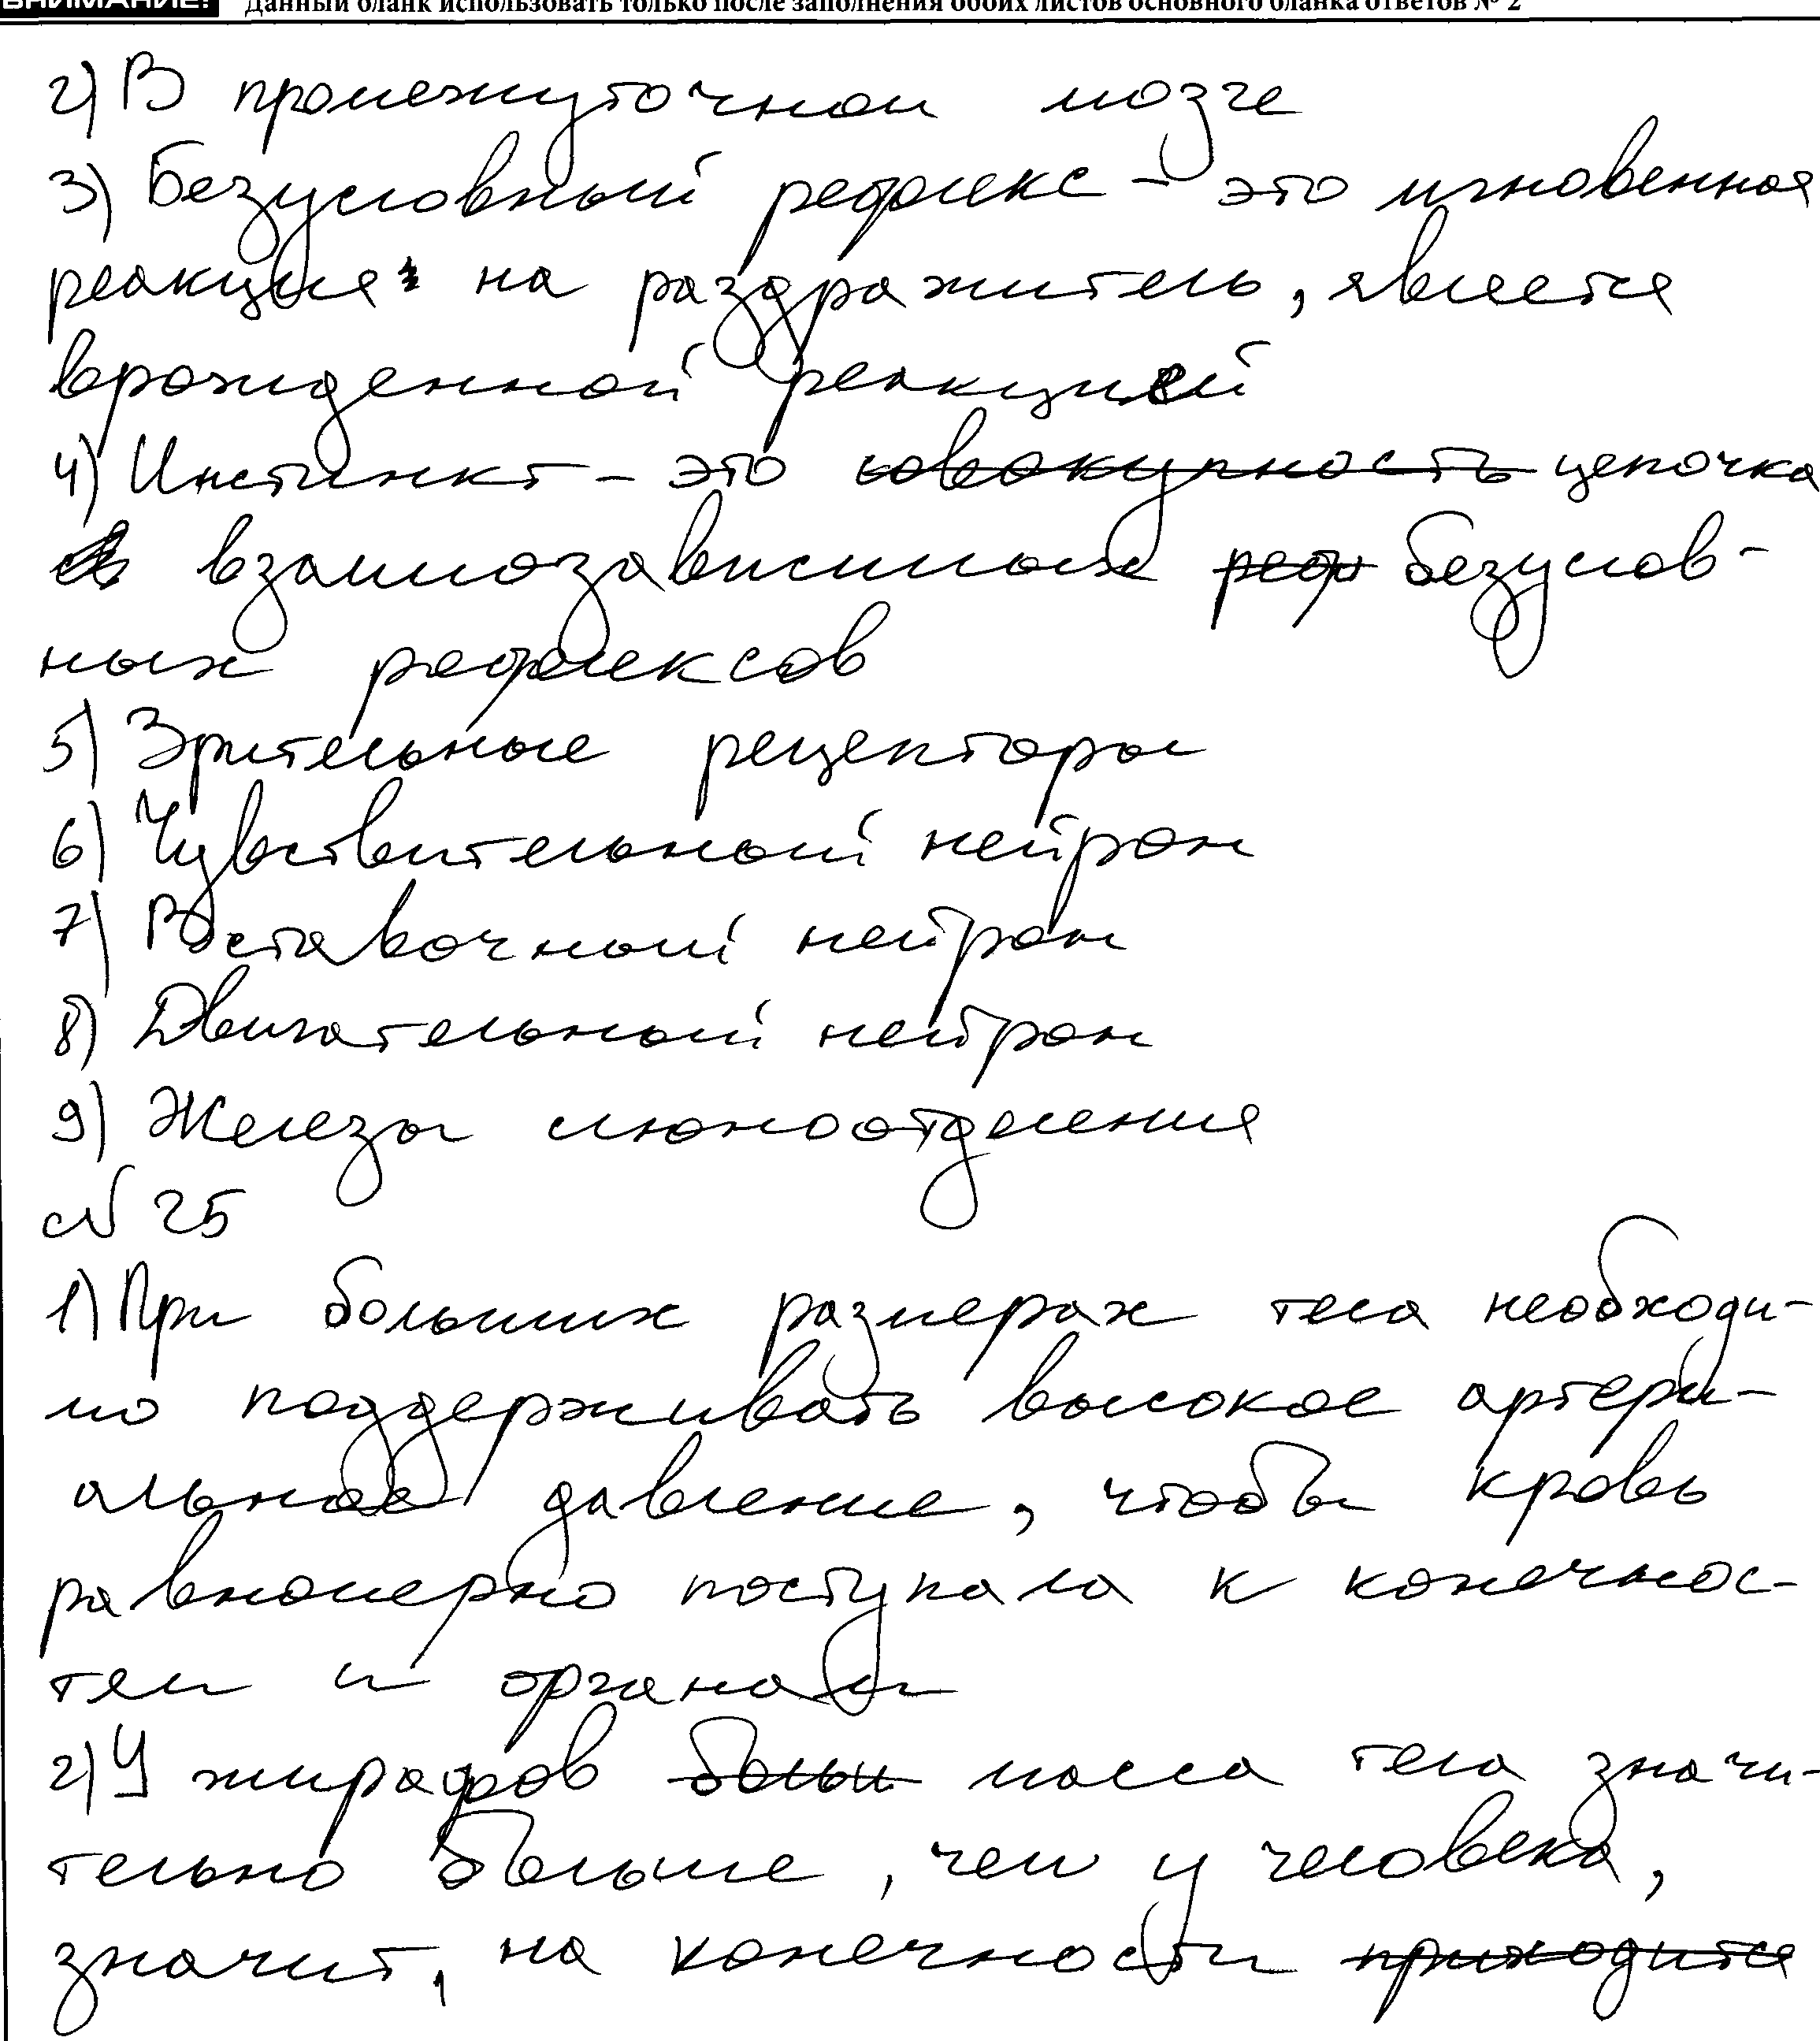 ВНИМАНИЕ! Данный бланк использовать только после заполнения обоих листов основного бланка ответов № 2
2) В промежуточном мозге
3) Безусловный рефлекс - это мгновенная
реакция на раздражитель, является
врожденной реакцией
4) Инстинкт - это совокупность цепочка
взаимозависимых реф безуслов-
ных рефлексов
5) Зрительные рецепторы
6) Чувствительный нейрон
7) Вставочный нейрон
8) Двигательный нейрон
9) Железы слюноотделения
№ 25
1) При больших размерах тела необходи-
мо поддерживать высокое артери-
альное давление, чтобы кровь
равномерно поступала к конечнос-
тям и органам
2) У жирафов больш масса тела значи-
тельно больше, чем у человека,
значит, на конечности приходится